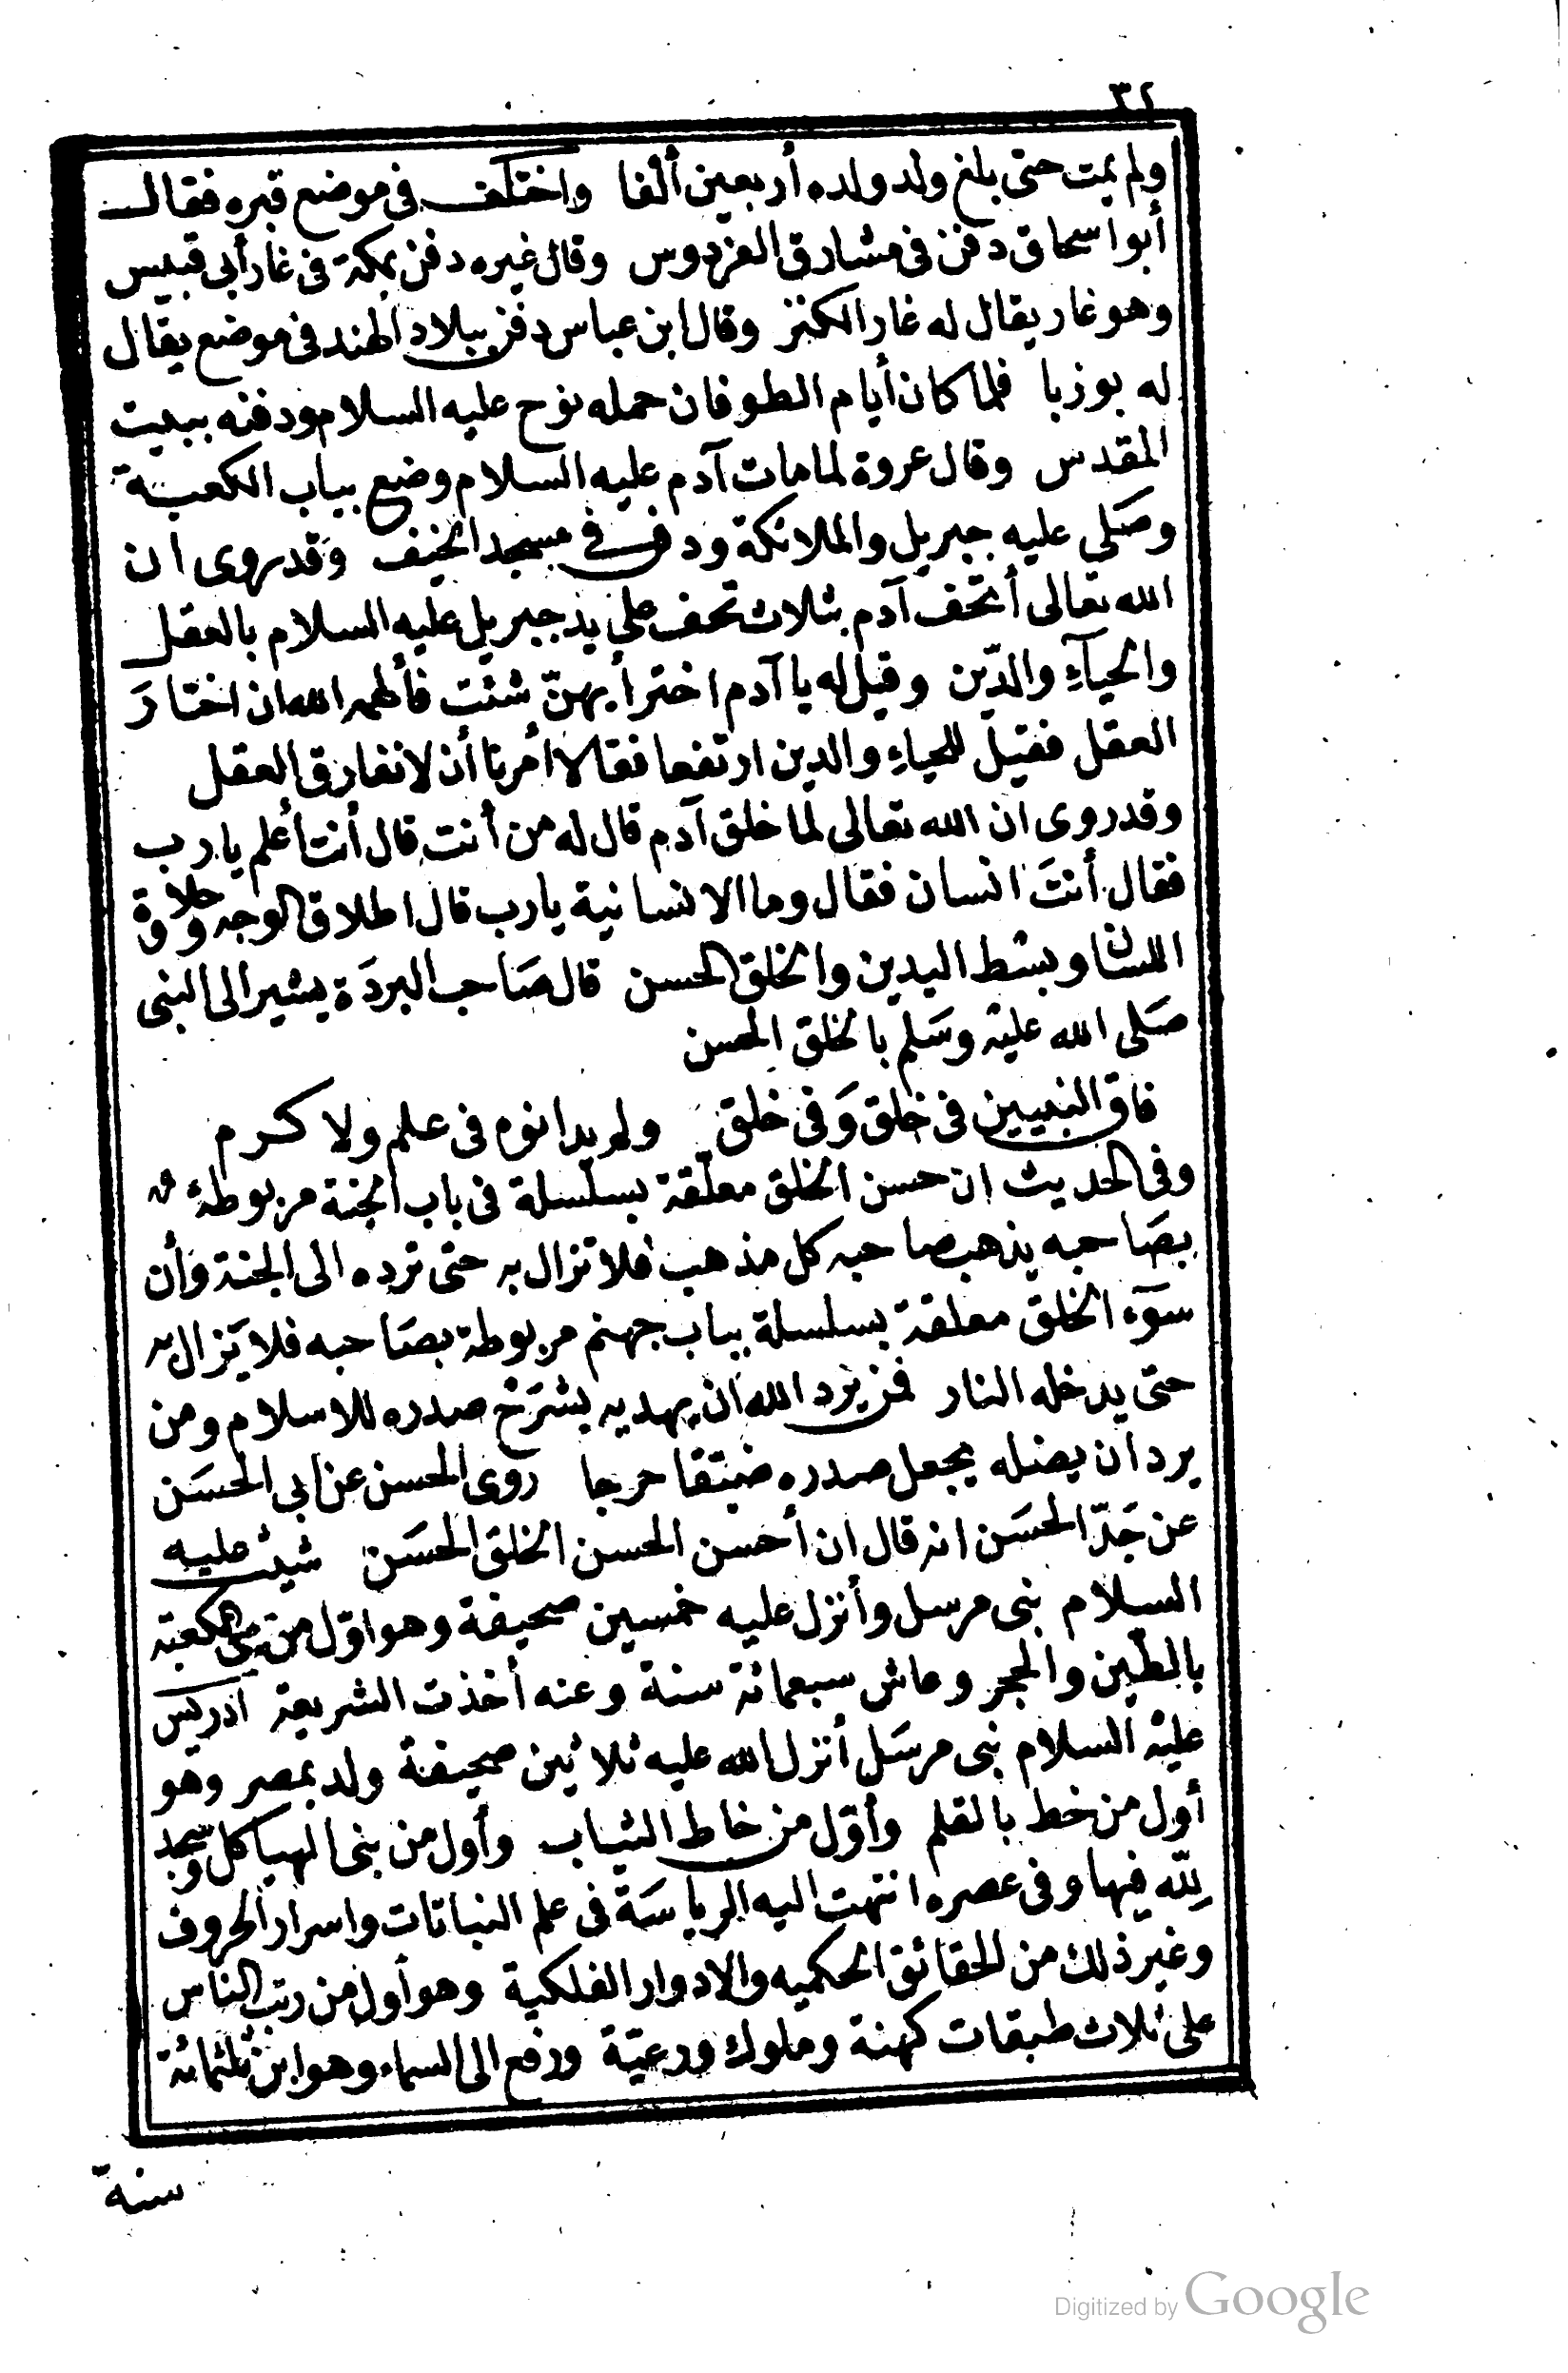 ٣٢
ولم يمت حتى بلغ ولد ولده أربعين ألفا واختلف فى موضع قبره فقال
أبو اسحاق دفن فى مشارق الفردوس وقال غيره دفن بمكة فى غار أبى قبيس
وهو غار يقال له غار الكنز وقال ابن عباس دفن ببلاد الهند فى موضع يقال
له بوزبا فلما كان أيام الطوفان حمله نوح عليه السلام ودفنه ببيت
المقدس وقال عروة لما مات آدم عليه السلام وضع بباب الكعبة
وصلى عليه جبريل والملائكة ودفن فى مسجد الخيف وقد روى ان
الله تعالى أتحف آدم بثلاث تحف على يد جبريل عليه السلام بالعقل
والحيآءِ والدّين وقيل له يا آدم اختر أيهنّ شئت فألهمه الله ان اختارَ
العقل فقيل للحياءِ والدين ارتفعا فقالا أمرنا أن لا نفارق العقل
وقد روى ان الله تعالى لما خلق آدم قال له من أنت قال أنت أعلم يا رب
فقال أنتَ انسان فقال وما الانسانية يارب قال اطلاق الوجه وحلاوة
اللسان وبسط اليدين والخلق الحسن قال صَاحب البردَة يشير الى النبى
صَلى الله عليه وسَلم بالخلق الحسن
فاق النبيين فى خلق وَفى خلق ولم يدانوه فى علم ولا كرم
وفى الحديث ان حسن الخلق معلّقة بسلسلة فى باب الجنة مربوطة
بصَاحبه يذهب صاحبه كل مذهب فلا تزال به حتى ترده الى الجنة وأن
سوٓء الخلق معلقة بسلسلة بباب جهنم مربوطة بصَاحبه فلا يَزال به
حتى يدخله النار فمن يرد الله ان يهديه يشرَح صدره للاسلام ومن
يرد ان يضله يجعل صدره ضيقا حرجا روى الحسن عن ابى الحسَن
عن جَدّ الحسَن انه قال ان أحسن الحسن الخلق الحسَن شيث عليه
السلام نبى مرسل وأنزل عليه خمسين صحيفة وهو اوّل من بنى الكعبة
بالطّين والحجر وعاش سبعمائة سنة وعنه أخذت الشريعة ادريس
عليه السلام نبى مرسَل أنزل الله عليه ثلاثين صحيفة ولد بمصر وهو
أول من خط بالقلم وأوّل من خاط الثياب وأول من بنى الهياكل وسجد
للّه فيها وفى عصره انتهت اليه الرياسَة فى علم النباتات واسرار الحروف
وغير ذلك من الحقائق الحكميه والادوار الفلكية وهو أول من رتب الناس
على ثلاث طبقات كهنة وملوك ورعيّة ورفع الى السماء وهو ابن ثلثمائة
سنة
Digitized by Google